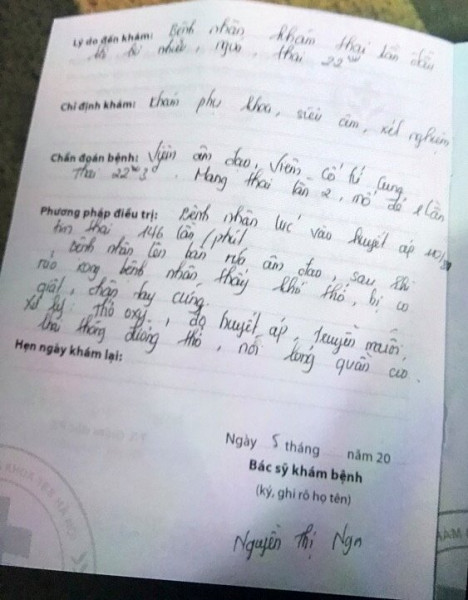 Lý do đến khám: Bệnh nhân khám thai lần đầu
ra khí nhiều, ngứa, thai 22W
Chỉ định khám: khám phụ khoa, siêu âm, xét nghiệm
Chẩn đoán bệnh: Viêm âm đạo, Viêm cổ tử cung
Thai 22W3d. Mang thai lần 2, mổ đẻ 1 lần
Phương pháp điều trị: Bệnh nhân lúc vào huyết áp 110/
tim thai 146 lần/phút
Bệnh nhân lên bàn rửa âm đạo, sau khi
rửa xong bệnh nhân thấy khó thở, bị co
giật, chân tay cứng.
Xử lý: thở oxy, đo huyết áp, truyền muối,
khai thông đường thở, nới lỏng quần áo.
Hẹn ngày khám lại:
Ngày 5 tháng năm 20
Bác sỹ khám bệnh
(ký, ghi rõ họ tên)
Nguyễn Thị Nga